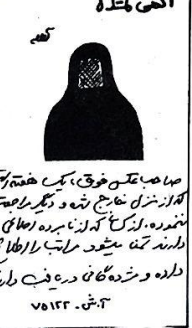 آگهی گمشده
صاحب عکس فوق، یک هفته است
که از منزل خارج شده و دیگر مراجعت
ننموده. از کسانی که از نامبرده اطلاعی
دارند تمنا میشود مراتب را اطلاع
داده و مژدگانی دریافت دارند
آ.ش. ۷۵۱۲۲